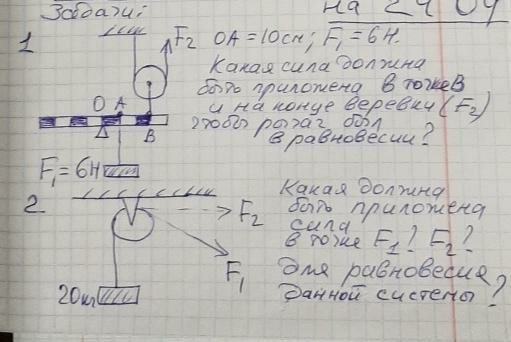 Задачи:
на 24 04
1
F₂ OA = 10 см; F₁ = 6 Н.
Какая сила должна
быть приложена в точке В
и на конце веревки (F₂)
чтобы рычаг был
в равновесии?
O A
B
F₁ = 6 Н
2
Какая должна
быть приложена
сила
в точке F₁? F₂?
для равновесия
данной системы?
F₂
F₁
20 кг